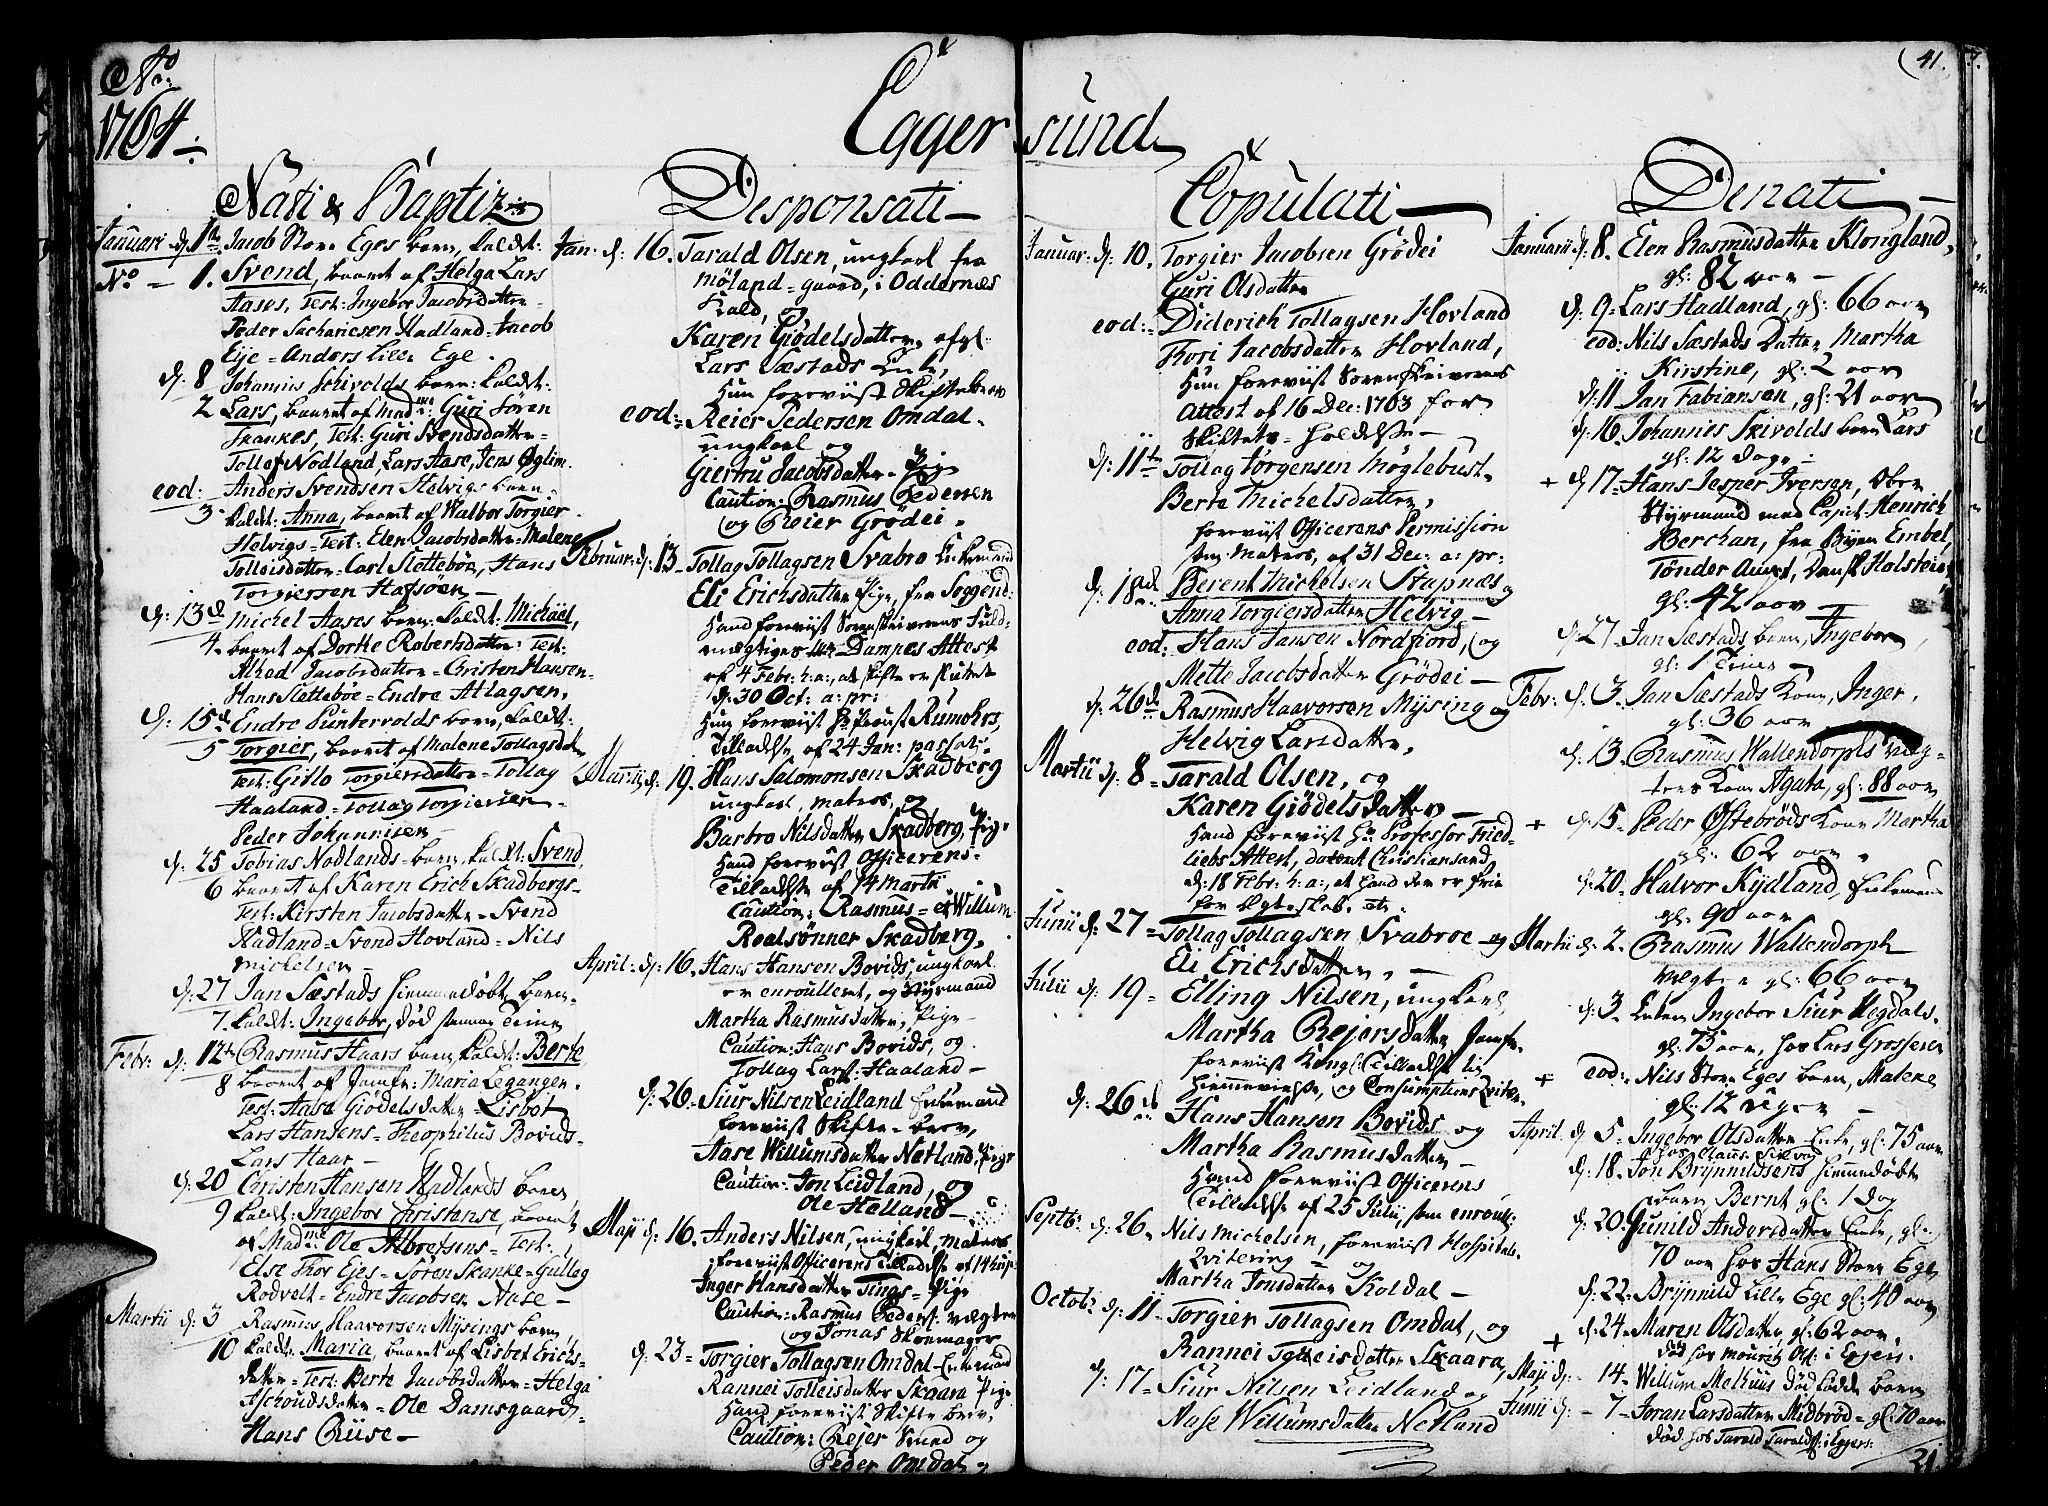 Ao
1764
Eggersund
(41.
Nati & Baptiz:
Januari d. 1te Jacob Store Eges barn, kaldt:
No = 1. Svend, baaret af Helga Lars
Aases, Test: Ingebor Jacobsdatter
Peder Sachariesen Hadland = Jacob
Eije = Anders Lille Ege.
d. 8 Johannis Schivolds barn: kaldt:
2 Lars, baaret af Madme: Guri Sören
Skankes, Test: Guri Svendsdatter =
Tollef Nodland, Lars Aase, Jens Øglim.
eod: Anders Svendsen Helvigs barn
3 kaldt: Anna, baaret af Walbor Torgier
Helvigs = Test: Elen Jacobsdatter = Malene
Tolleisdatter = Carl Sletteböe, Hans
Torgiersen Hafsöen =
d: 13d Michel Aases barn: kaldt: Michael,
4. baaret af Dorthe Robertsdatter: Test:
Alhed Jacobsdatter = Christen Hansen =
Hans Sletteböe = Endre Atlagsen.
d: 15d Endre Puntervolds barn, kaldt:
5 Torgier, baaret af Malene Tollagsdatter
Test: Gitlo Torgiersdatter = Tollag
Haaland = Tollag Torgiersen =
Peder Johannisen =
d: 25 Tobias Nodlands = barn, kaldt: Svend,
6 baaret af Karen Erich Skadbergs =
Test: Kirsten Jacobsdatter = Svend
Hadland = Svend Hovland = Nils
Michelsen =
d: 27 Jan Sæstads hiemmedøbt barn =
7. kaldt: Ingebor, død samme Time
Febr: d: 12te Rasmus Haars barn, kaldt: Berte,
8 baaret af Jomfr: Maria Legangen.
Test: Aase Giödelsdatter = Lisbet
Lars Hansens = Theophilus Bovids =
Lars Haar =
d: 20 Christen Hansen Hadlands barn,
9 kaldt: Ingebor Christense, baaret
af Madme Ole Albretsens = Test:
Else Thor Ejes = Sören Skanke = Gullag
Rodvelt = Endre Jacobsen Aase =
Martii d: 3 Rasmus Haavorsen Mysings barn
10 kaldt: Maria, baaret af Lisbet Erichs =
datter = Test: Berte Jacobsdatter = Helga
Aschoudsdatter = Ole Damsgaard =
Hans Riise =
Desponsati
Jan: d: 16. Tarald Olsen, ungkarl fra
Möland = gaard, i Oddernæs
Kald, og
Karen Giødelsdatter, afgl:
Lars Sæstads Enke,
hun foreviist Skiftebrev
eod: = Reier Pedersen Omdal.
ungkarl og
Giertru Jacobsdatter = Pige
Caution: Rasmus Pedersen
og Reier Grödei.
Februar: d: 13 = Tollag Tollagsen Svabro Enkemand
Eli Erichsdatter Pige, fra Soggend:
Hand foreviist Sorenskriverens Fuld =
mægtiges Dampes Attest
af 4 Febr: h: a:, at skifte er sluttet
d: 30 Oct: a: pr:
Hun foreviist Hr Proust Rumohrs,
Tilladelse af 24 Jan: passati.
Martii d: 19. Hans Salomonsen Skadberg
ungkarl, Matros, og
Barbro Nilsdatter Skadberg, Pige
hand foreviist Officerens =
Tilladelse af 14 Martii
Caution: Rasmus = et Willum
Roalsönner Skadberg,
April: d: 16. Hans Hansen Bovids, ungkarl
er enroulleret, og Styrmand
Martha Rasmusdatter, Pige =
Caution: Hans Bovids, og
Tollag Lars: Haaland =
d: 26. Siur Nilsen Leidland Enkemand
foreviist Skifte = brev,
Aase Willumsdatter Netland, Pige
Caution: Jon Leidland, og
Ole Helland =
Maji d: 16. Anders Nilsen, ungkarl, Matros
foreviist Officerens Tilladelse af 14 hujs
Inger Hansdatter Tings = Pige
Caution: Rasmus Peders: vægter
og Jonas Skomager
d: 23 = Torgier Tollagsen Omdal Enkemand
Rannei Tolleisdatter Skaara Pige
hand foreviist Skifte brev,
Caution: Rejer Svend og
Peder Omdal
Copulati
Januar: d: 10. Torgier Jacobsen Grödei
Guri Olsdatter
eod: = Diderich Tollagsen Hovland
Thori Jacobsdatter Hovland,
hun foreviist Sorenskriverens
Attest af 16 Dec: 1763 for
Skiftets = holdelse =
d: 11te Tollag Jørgensen Möglebust.
Berte Michelsdatter,
foreviist Officerens Permission
som Matros, af 31 Dec: a: pr:
d: 18de Berent Michelsen Stapnæs og
Anna Torgiersdatter Helvig =
eod: Hans Jansen Nordfiord, og
Mette Jacobsdatter Grödei =
d: 26de Rasmus Haavorsen Mysing og
Helvig Larsdatter,
Martii d: 8 = Tarald Olsen, og
Karen Giødelsdatter =
hand foreviist Hr Professor Fried =
liebs Attest, dateret Christiansand
d: 18 Febr: h: a:, at hand der er frie
for Egteskab, etc.
Junii d: 27 = Tollag Tollagsen Svabroe og
Eli Erichsdatter, =
Julii d: 19 = Elling Nilsen, ungkarl
Martha Rejersdatter Jomfr.
foreviist Kongl: Tilladelse til
hiemmevielse, og Consumptions Qviter.
d: 26de Hans Hansen Bovids og
Martha Rasmusdatter =
hand foreviist Officerens
Tilladelse af 25 Julii, som enroul:
Septb: d: 26. Nils Michelsen, foreviist Hospitals =
Qvitering = og
Martha Jonsdatter Koldal =
Octob: d: 11 = Torgier Tollagsen Omdal, og
Rannei Tolleisdatter Skaara,
d: 17 = Siur Nilsen Leidland og
Aase Willumsdatter Netland
Denati
Januarii d: 8. Elen Rasmusdatter Klongland,
gl: 82 aar =
d: 9 = Lars Hadland, gl: 66 aar
eod: Nils Sæstads Datter Martha
Kirstine, gl: 2 aar
d: 11 Jan Fabiansen, gl: 21 aar
d: 16. Johannis Skivolds barn Lars
gl: 12 dage =
+ d: 17 = Hans Jesper Iversen, Over
Styrmand med Capit: Henrich
Berchan, fra Byen Embel,
Tönder Amt, Dansk Holsteen
gl: 42 aar =
d: 27 Jan Sæstads barn, Ingebor,
gl: 1 Time =
Febr: d: 3. Jan Sæstads Kone, Inger,
gl: 36 aar
d: 13. Rasmus Wallendorphs væg =
ters Kone Agata, gl: 88 aar
+ d: 15 = Peder Østebröds Kone Martha
gl: 62 aar.
d: 20. Halvor Kydland, Enkemand
gl: 90 aar
Martii d: 2. Rasmus Wallendorph
vægter gl: 66 aar
d: 3. Enken Ingebor Siur Hegdals.
gl: 73 aar, hos Lars Grosseren
+ eod: Nils Store Eges barn, Malene
gl: 12 uger =
April d: 5 = Ingebor Olsdatter Enke, gl: 75 aar
hos Claus
d: 18. Jon Brynnildsens hiemmedøbte
barn Bernt gl: 1 dag
d: 20. Gunild Andersdatter Enke, gl:
70 aar hos Hans Store Ege
d: 22 = Brynnild Lille Ege gl: 40 aar
+ d: 24 = Maren Olsdatter, gl: 62 aar.
død hos Mourits Ols: i Eggers.
Maji d: = 14 = Willum Melhuus død fødde barn
Junii d: = 7 = Joran Larsdatter Midbröd = gl: 70 aar
død hos Tarald Taralds: i Eggers:
21